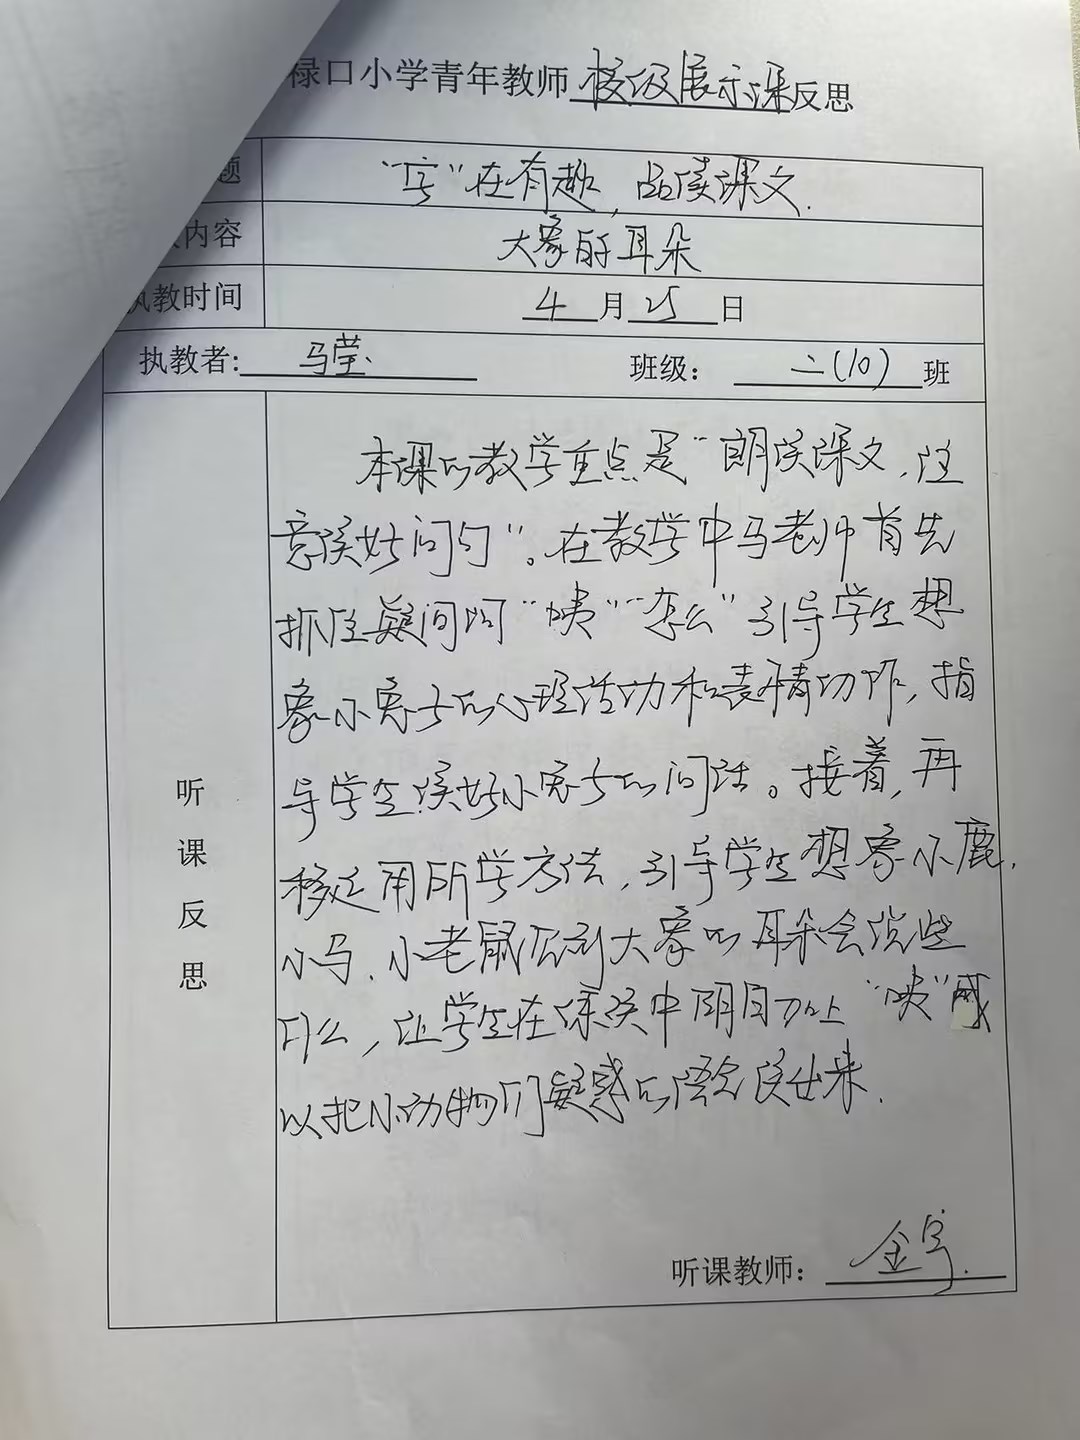 禄口小学青年教师校级展示课反思
题 “字”在有趣，品读课文.
内容 大象的耳朵
执教时间 4月25日
执教者：马莹. 班级：二(10)班
听课反思
本课的教学重点是“朗读课文，注
意读好问句”。在教学中马老师首先
抓住疑问词“咦”“怎么”引导学生想
象小兔子的心理活动和表情动作，指
导学生读好小兔子的问话。接着，再
移迁用所学方法，引导学生想象小鹿、
小马、小老鼠见到大象的耳朵会说些
什么，让学生在练读中明白加上“咦”
以把小动物们疑惑的语气读出来.
听课教师：金宇.